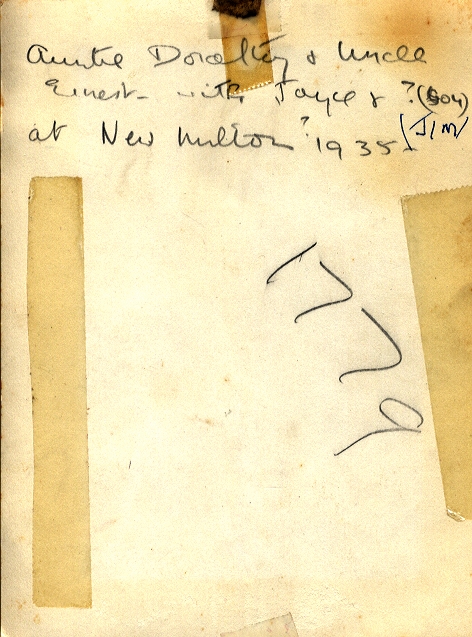 Auntie Dorothy & Uncle
Ernest - with Joyce & ? (boy)
at New Milton ? 1935. (Jim)
1779